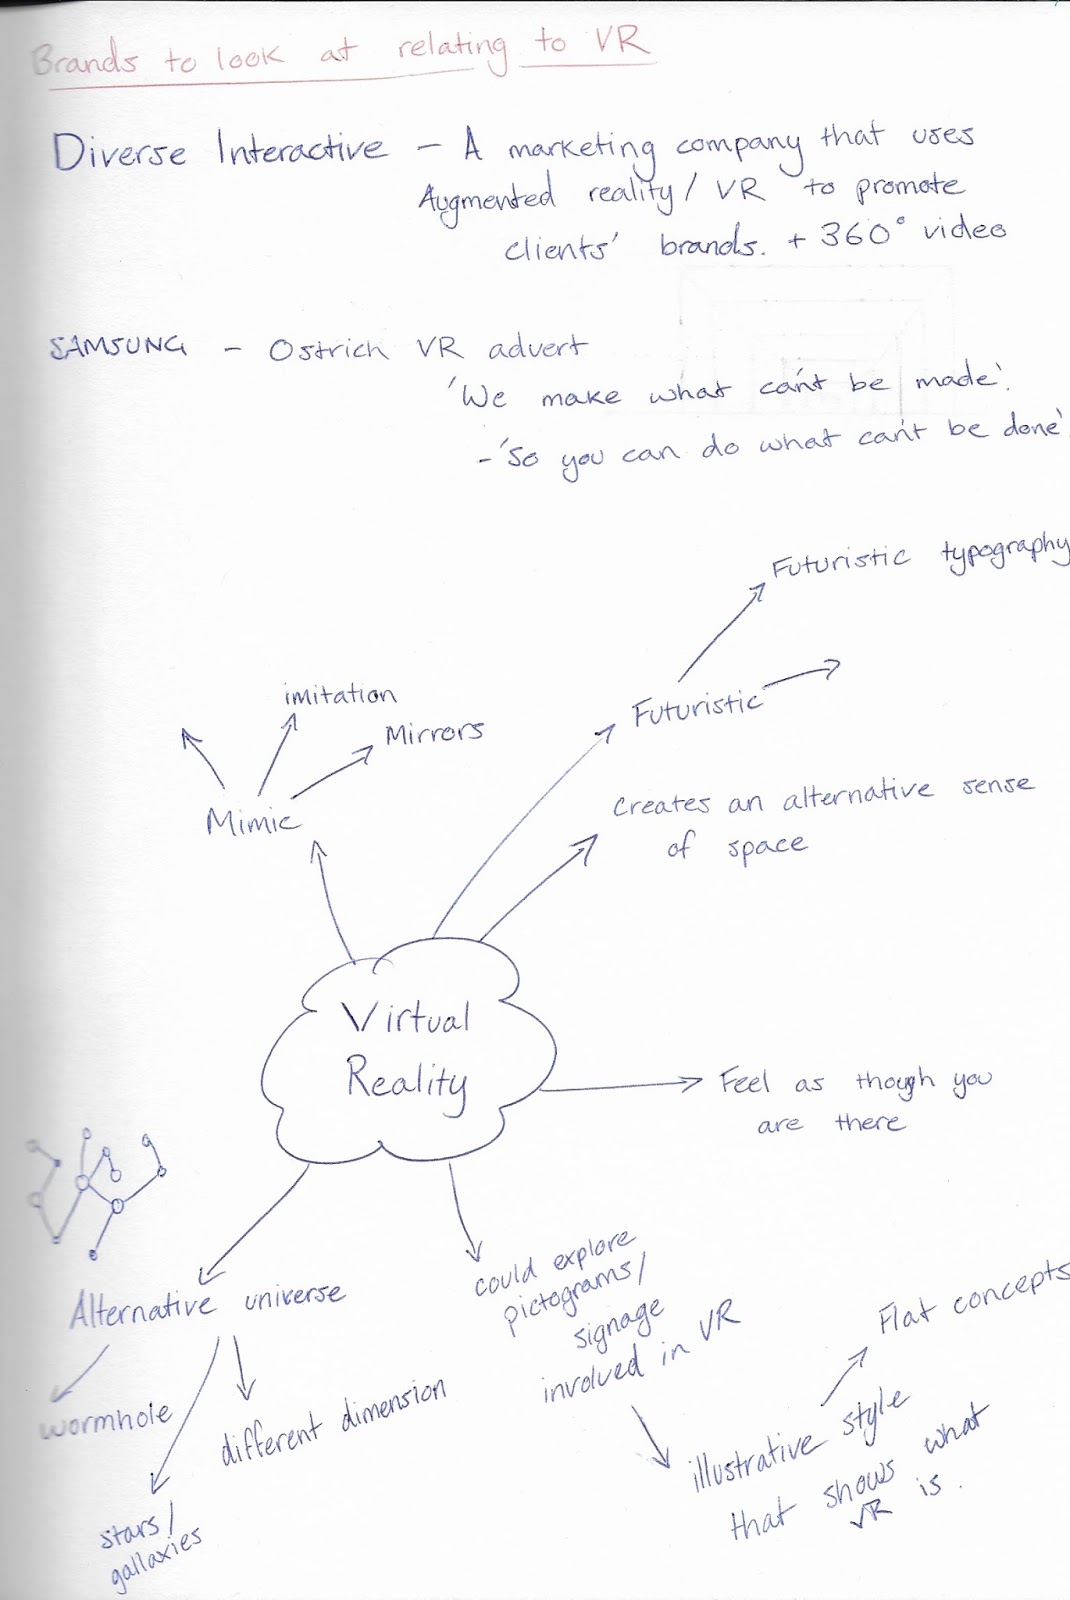 Brands to look at relating to VR
Diverse Interactive – A marketing company that uses
Augmented reality / VR to promote
clients' brands. + 360° video
SAMSUNG – Ostrich VR advert
'We make what can't be made'.
– 'So you can do what can't be done'.
Futuristic typography
Futuristic
imitation
Mirrors
Mimic
Creates an alternative sense
of space
Virtual
Reality
Feel as though you
are there
Alternative universe
wormhole
different dimension
stars /
gallaxies
could explore
pictograms /
signage
involved in VR
Flat concepts
illustrative style
that shows what
VR is.